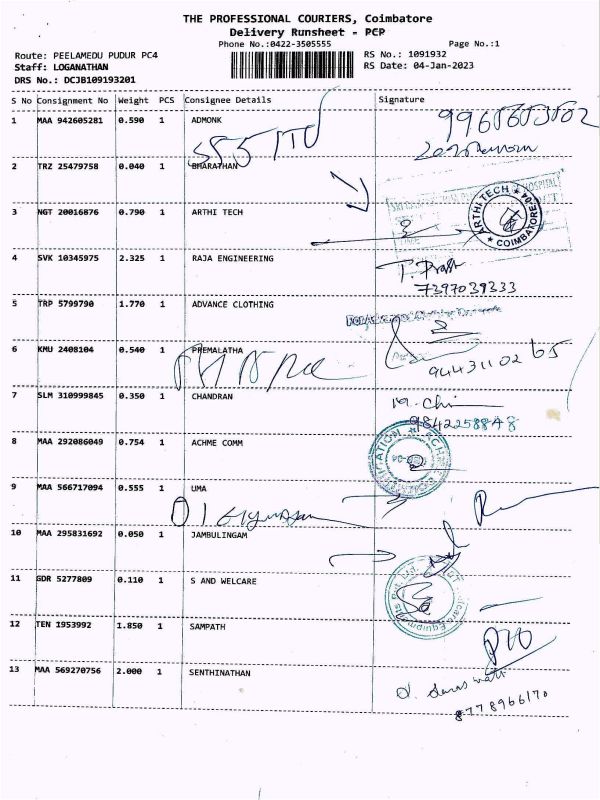 THE PROFESSIONAL COURIERS, Coimbatore
Delivery Runsheet - PCP
Phone No.:0422-3505555 Page No.:1
Route: PEELAMEDU PUDUR PC4 RS No.: 1091932
Staff: LOGANATHAN RS Date: 04-Jan-2023
DRS No.: DCJB109193201
S No Consignment No Weight PCS Consignee Details Signature
1 MAA 942605281 0.590 1 ADMONK
2 TRZ 25479758 0.040 1 BHARATHAN
3 NGT 20016876 0.790 1 ARTHI TECH
ARTHI TECH COIMBATORE-04
4 SVK 10345975 2.325 1 RAJA ENGINEERING
7397039333
5 TRP 5799790 1.770 1 ADVANCE CLOTHING
6 KMU 2408104 0.540 1 PREMALATHA
9443110265
7 SLM 310999845 0.350 1 CHANDRAN
8 MAA 292086049 0.754 1 ACHME COMM
9 MAA 566717094 0.555 1 UMA
10 MAA 295831692 0.050 1 JAMBULINGAM
11 GDR 5277809 0.110 1 S AND WELCARE
12 TEN 1953992 1.850 1 SAMPATH
13 MAA 569270756 2.000 1 SENTHINATHAN
8778966170